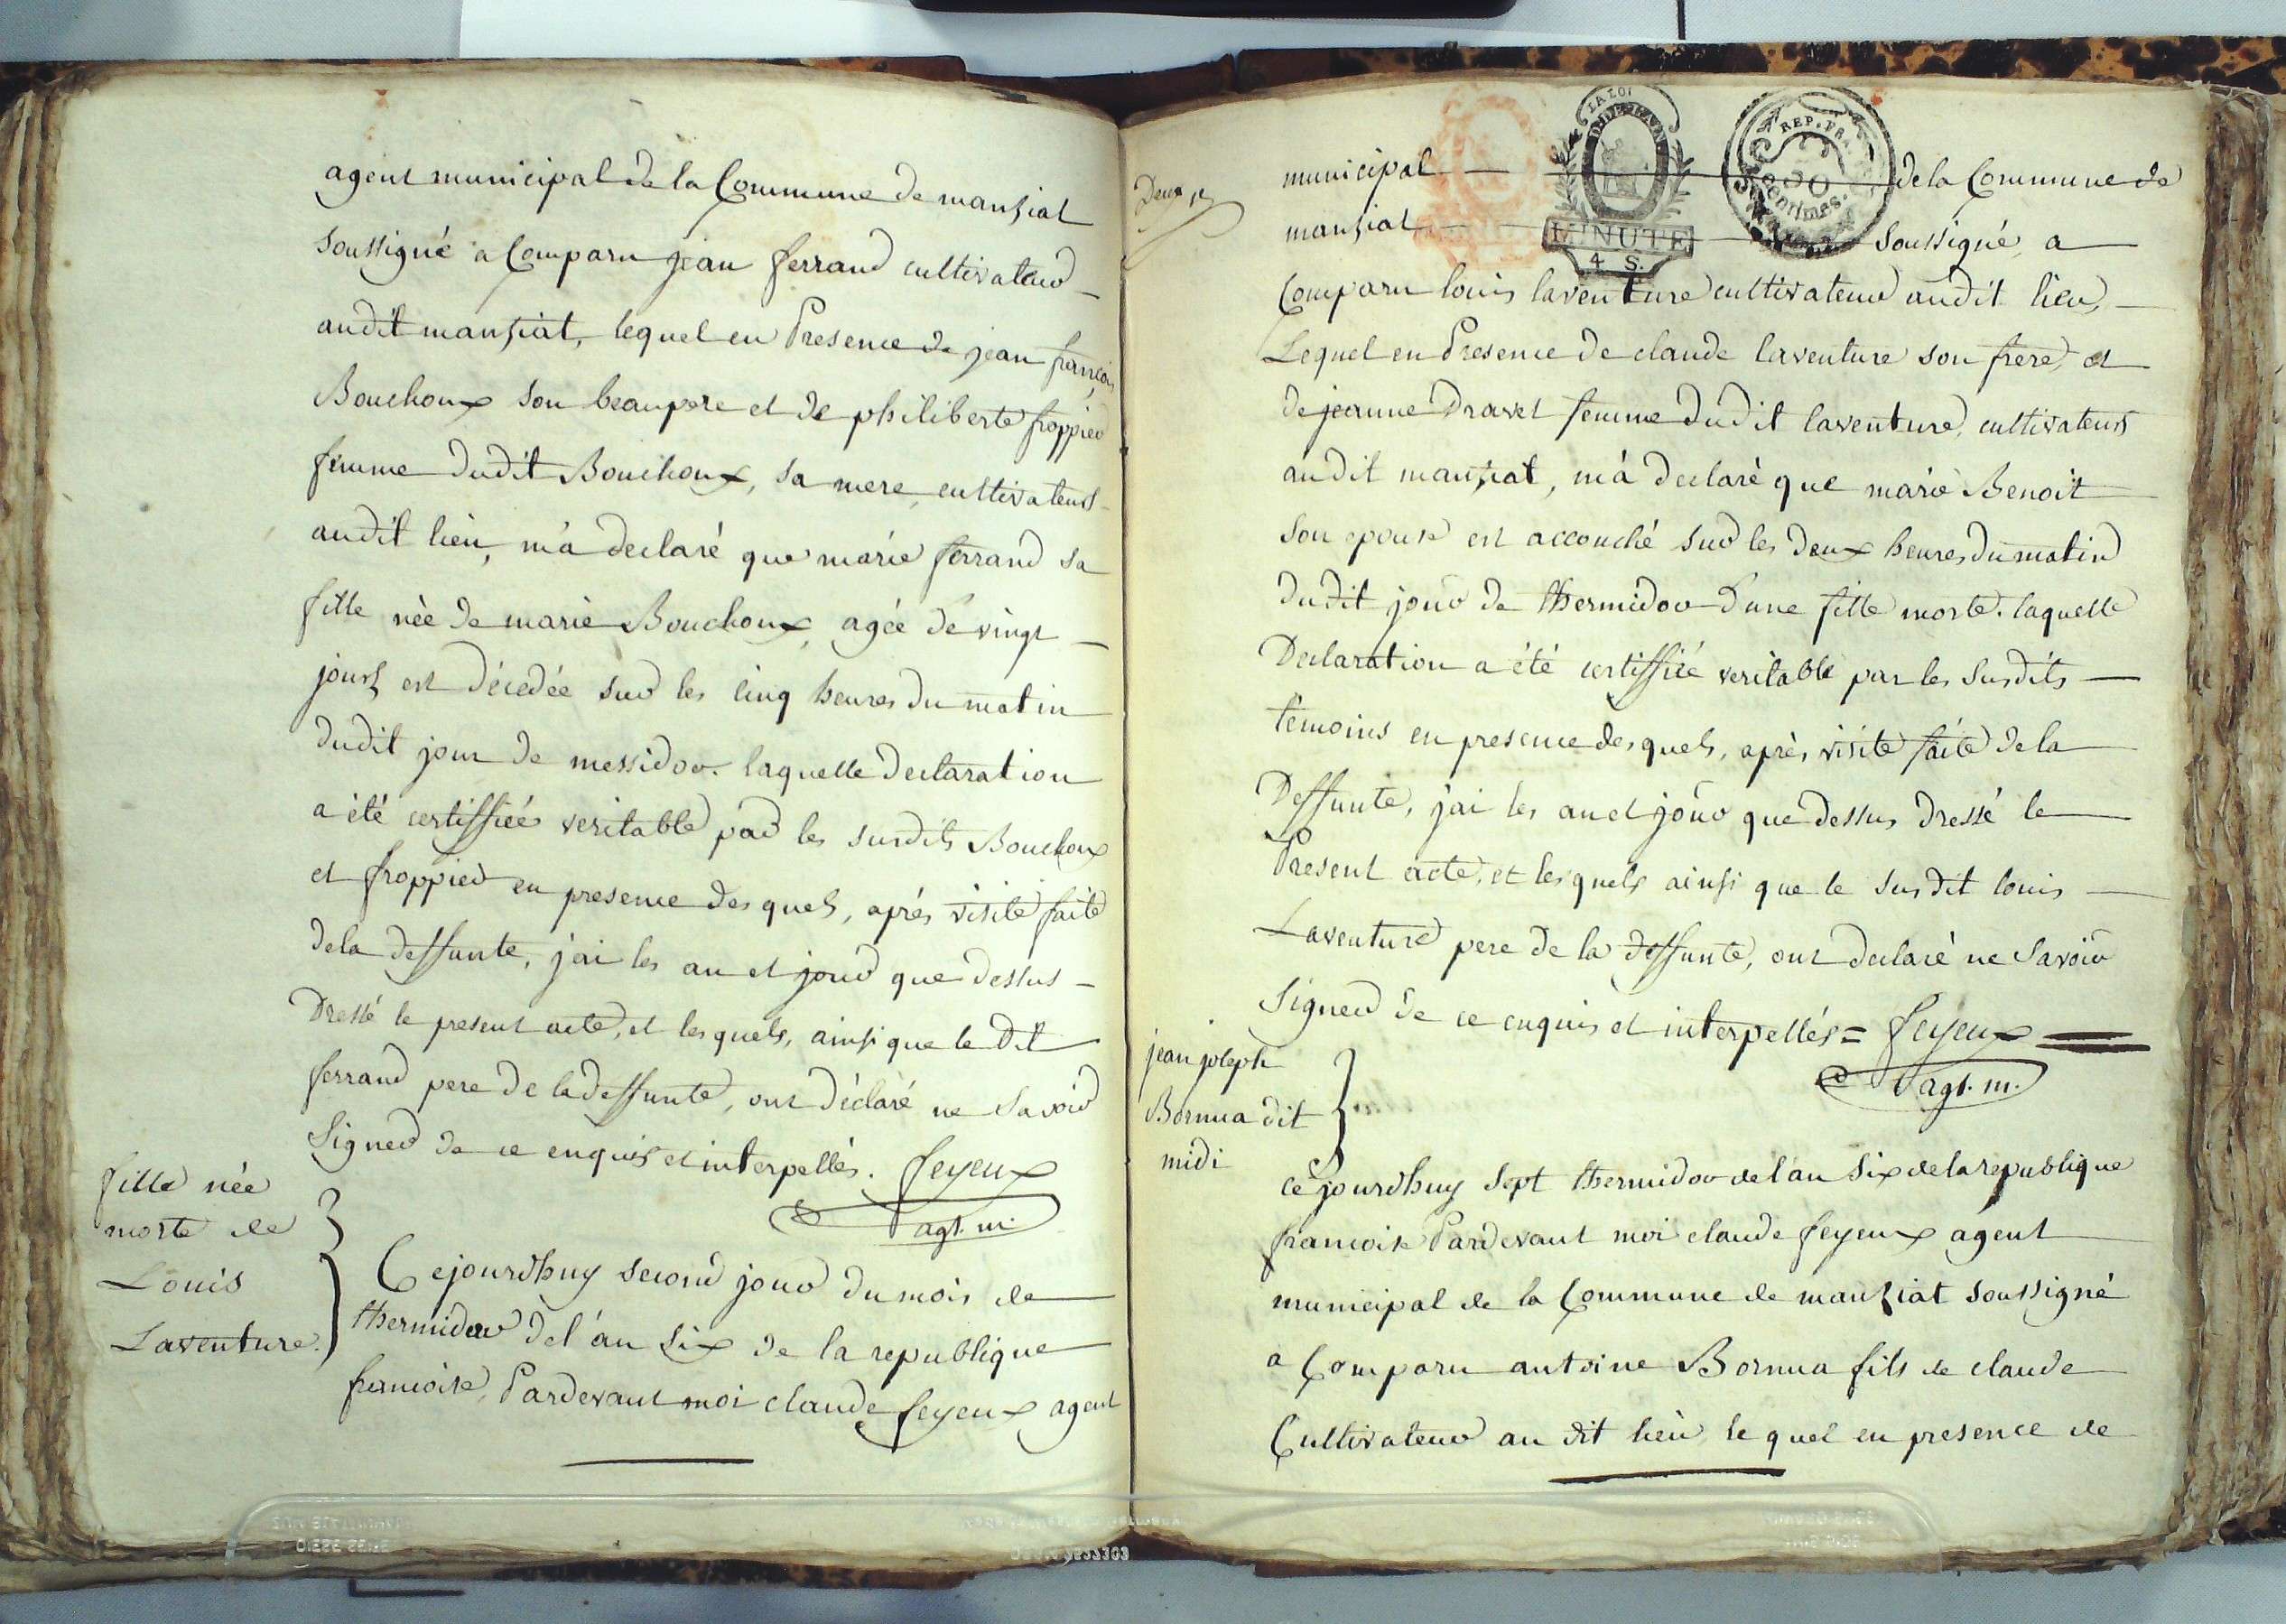 agent municipal de la Commune de manziat
soussigné a Comparu jean ferrand cultivateur
audit manziat, lequel en Presence de jean françois
Bouchoux son beaupere et de philiberte froppier
femme dudit Bouchoux, sa mere, cultivateurs
audit lieu, m'a declaré que marie ferrand sa
fille née de marie Bouchoux, agée de vingt
jours est décedée sur les cinq heures du matin
dudit jour de messidor. laquelle declaration
a été certiffiée veritable par les susdits Bouchoux
et froppier en presence des quels, aprés visite faite
de la deffunte, j'ai les an et jour que dessus
Dressé le present acte, et les quels, ainsi que le dit
ferrand pere de la deffunte, ont déclaré ne Savoir
Signer de ce enquis et interpellés. feyeux
agt. m.
fille née
morte de
Louis
Laventure.
Cejourdhuy second jour du mois de
thermidor de l'an six de la republique
francoise, Pardevant moi claude feyeux agent
Deux
municipal de la Commune de
manziat soussigné, a
LA LOI
REP. FRA.
50
centimes.
MINUTE
4 S.
Comparu louis laventure cultivateur audit lieu,
Lequel en Presence de claude laventure son frere, et
de jeanne Dravet femme dudit laventure, cultivateurs
audit manziat, m'a declaré que marie Benoit
son epouse est accouché sur les deux heures du matin
dudit jour de thermidor d'une fille morte. laquelle
Declaration a été certiffiée veritable par les susdits
témoins en presence des quels, après visite faite de la
Deffunte, j'ai les an et jour que dessus Dressé le
Present acte, et les quels ainsi que le susdit louis
Laventure pere de la deffunte, ont declaré ne Savoir
Signer de ce enquis et interpellés = feyeux
agt. m.
jean joseph
Bornua dit
midi
Ce jourdhuy sept thermidor de l'an six de la republique
francoise Pardevant moi claude feyeux agent
municipal de la Commune de manziat soussigné
a Comparu antoine Bornua fils de claude
Cultivateur au dit lieu le quel en presence de